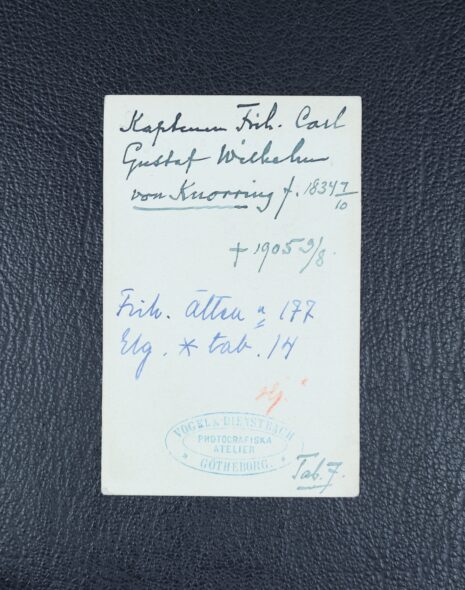 Kaptenen Frih. Carl
Gustaf Wilhelm
von Knorring f. 1834 7/10
† 1905 9/8.
Frih. ätten n 177
Elg. * tab. 14
VOGEL & DIENSTBACH
PHOTOGRAFISKA
ATELIER
* GÖTHEBORG. *
Tab. 7.